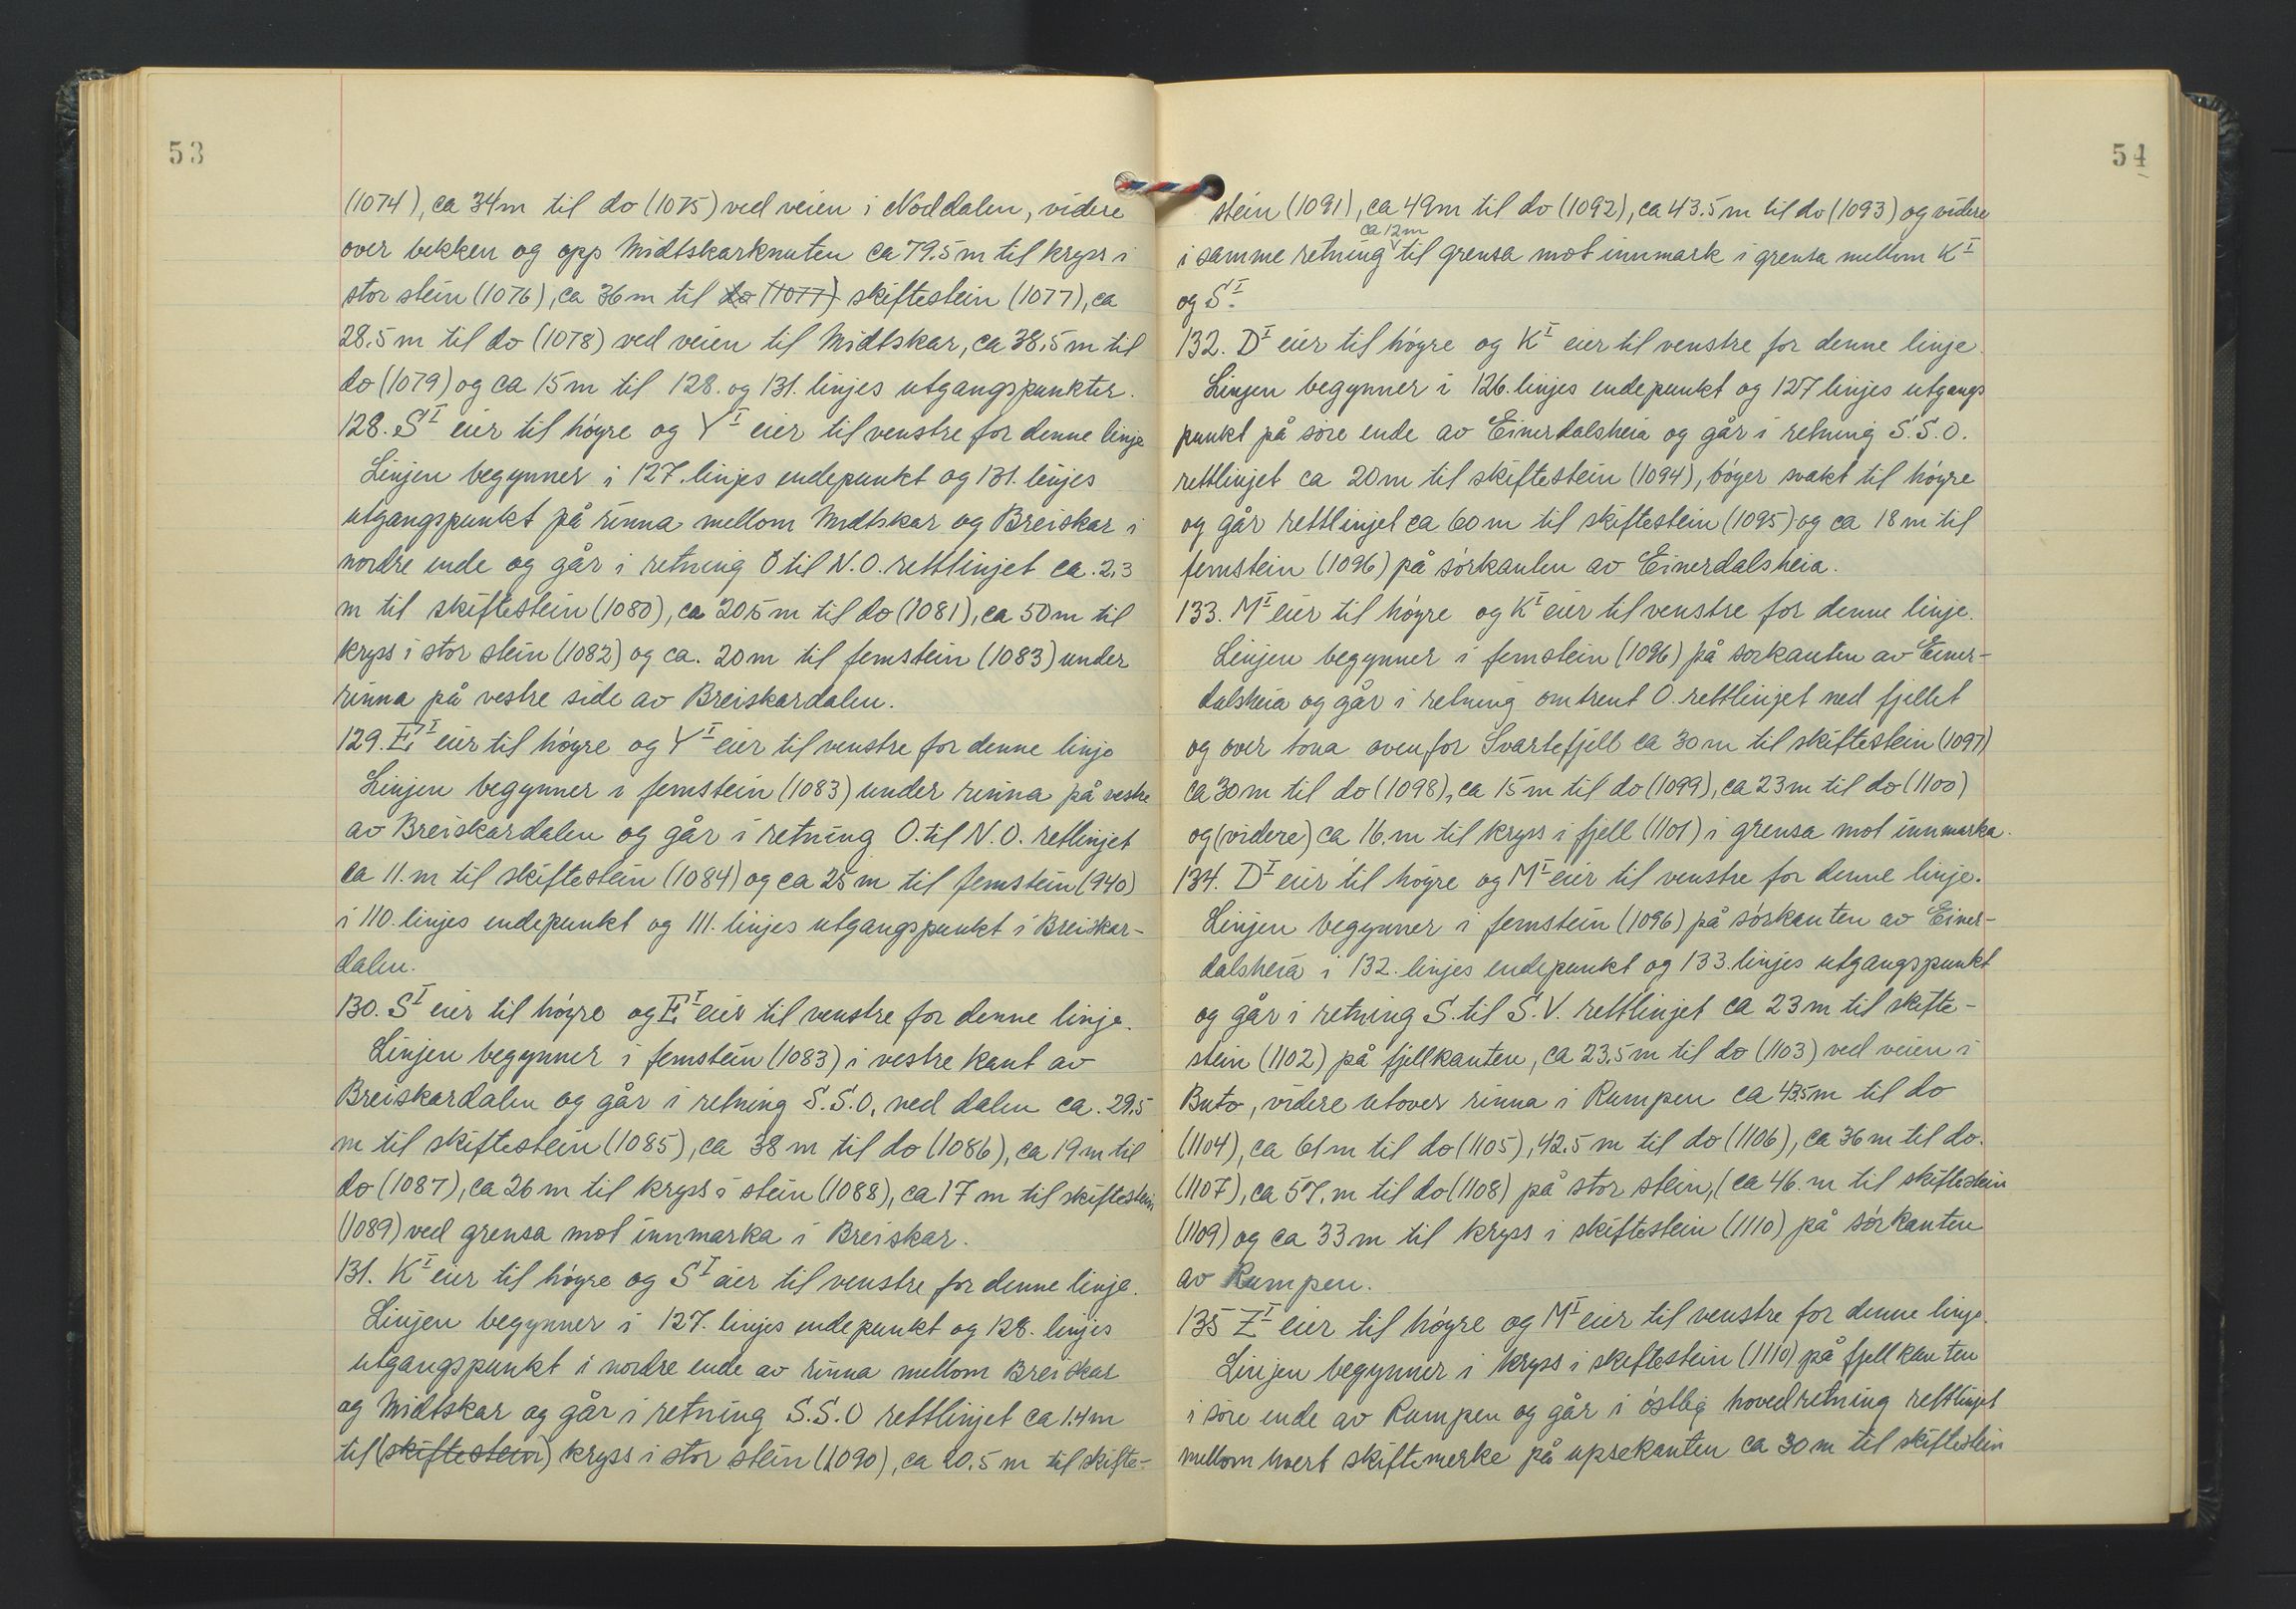 53
(1074), ca 34m til do (1075) ved veien i Noddalen, videre
over bekken og opp Midtskarknuten ca 79.5 m til kryss i
stor stein (1076), ca 36m til do (1077) skiftestein (1077), ca
28.5 m til do (1078) ved veien til Midtskar, ca 38.5 m til
do (1079) og ca 15m til 128. og 131. linjes utgangspunkter.
128. S^I eier til höyre og Y^I eier til venstre for denne linje
Linjen begynner i 127. linjes endepunkt og 131. linjes
utgangspunkt på rinna mellom Midtskar og Breiskar i
nordre ende og går i retning O til N.O. rettlinjet ca. 2.3
m til skiftestein (1080), ca 20.5 m til do (1081), ca 50m til
kryss i stor stein (1082) og ca. 20m til femstein (1083) under
rinna på vestre side av Breiskardalen.
129. E^I eier til höyre og Y^I eier til venstre for denne linje
Linjen begynner i femstein (1083) under rinna på vestre
av Breiskardalen og går i retning O. til N.O. retlinjet
ca 11. m til skiftestein (1084) og ca 28 m til femstein (940)
i 110. linjes endepunkt og 111. linjes utgangspunkt i Breiskar-
dalen.
130. S^I eier til höyre og E^I eier til venstre for denne linje.
Linjen begynner i femstein (1083) i vestre kant av
Breiskardalen og går i retning S.S.O. ned dalen ca. 29.5
m til skiftestein (1085), ca 38 m til do (1086), ca 19m til
do (1087), ca 26 m til kryss i stein (1088), ca 17 m til skiftestein
(1089) ved grensa mot innmarka i Breiskar.
131. K^I eier til höyre og S^I eier til venstre for denne linje.
Linjen begynner i 127. linjes endepunkt og 128. linjes
utgangspunkt i nordre ende av rinna mellom Breiskar
og Midtskar og går i retning S.S.O rettlinjet ca 14m
til (skiftestein) kryss i stor stein (1090), ca 20.5 m til skifte-
54
stein (1091), ca 49m til do (1092), ca 43.5 m til do (1093) og videre
ca 12m
i samme retning til grensa mot innmark i grensa mellom K^I
og S^I.
132. D^I eier til höyre og K^I eier til venstre for denne linje.
Linjen begynner i 126. linjes endepunkt og 127 linjes utgangs
punkt på söre ende av Einerdalsheia og går i retning S.S.O.
rettlinjet ca 20m til skiftestein (1094), böyer svakt til höyre
og går rettlinjet ca 60m til skiftestein (1095) og ca 18m til
femstein (1096) på sörkanten av Einerdalsheia.
133. M^I eier til höyre og K^I eier til venstre for denne linje.
Linjen begynner i femstein (1096) på sörkanten av Einer-
dalsheia og går i retning omtrent O. rettlinjet ned fjellet
og over tona ovenfor Svartefjell ca 30m til skiftestein (1097)
ca 30m til do (1098), ca 15m til do (1099), ca 23m til do (1100)
og (videre) ca 16. m til kryss i fjell (1101) i grensa mot innmarka.
134. D^I eier til höyre og M^I eier til venstre for denne linje.
Linjen begynner i femstein (1096) på sörkanten av Einer-
dalsheia i 132. linjes endepunkt og 133. linjes utgangspunkt
og går i retning S. til S.V. rettlinjet ca 23m til skifte-
stein (1102) på fjellkanten, ca 23.5m til do (1103) ved veien i
Buto, videre utover rinna i Rumpen ca 43.5m til do
(1104), ca 61m til do (1105), 42.5 m til do (1106), ca 36m til do.
(1107), ca 57. m til do (1108) på stor stein, (ca 46. m til skiftestein
(1109) og ca 33m til kryss i skiftestein (1110) på sörkanten
av Rumpen.
135 Z^I eier til höyre og M^I eier til venstre for denne linje.
Linjen begynner i kryss i skiftestein (1110) på fjellkanten
i söre ende av Rumpen og går i östlig hovedretning rettlinjet
mellom hvert skiftemerke på upsekanten ca 30m til skiftestein